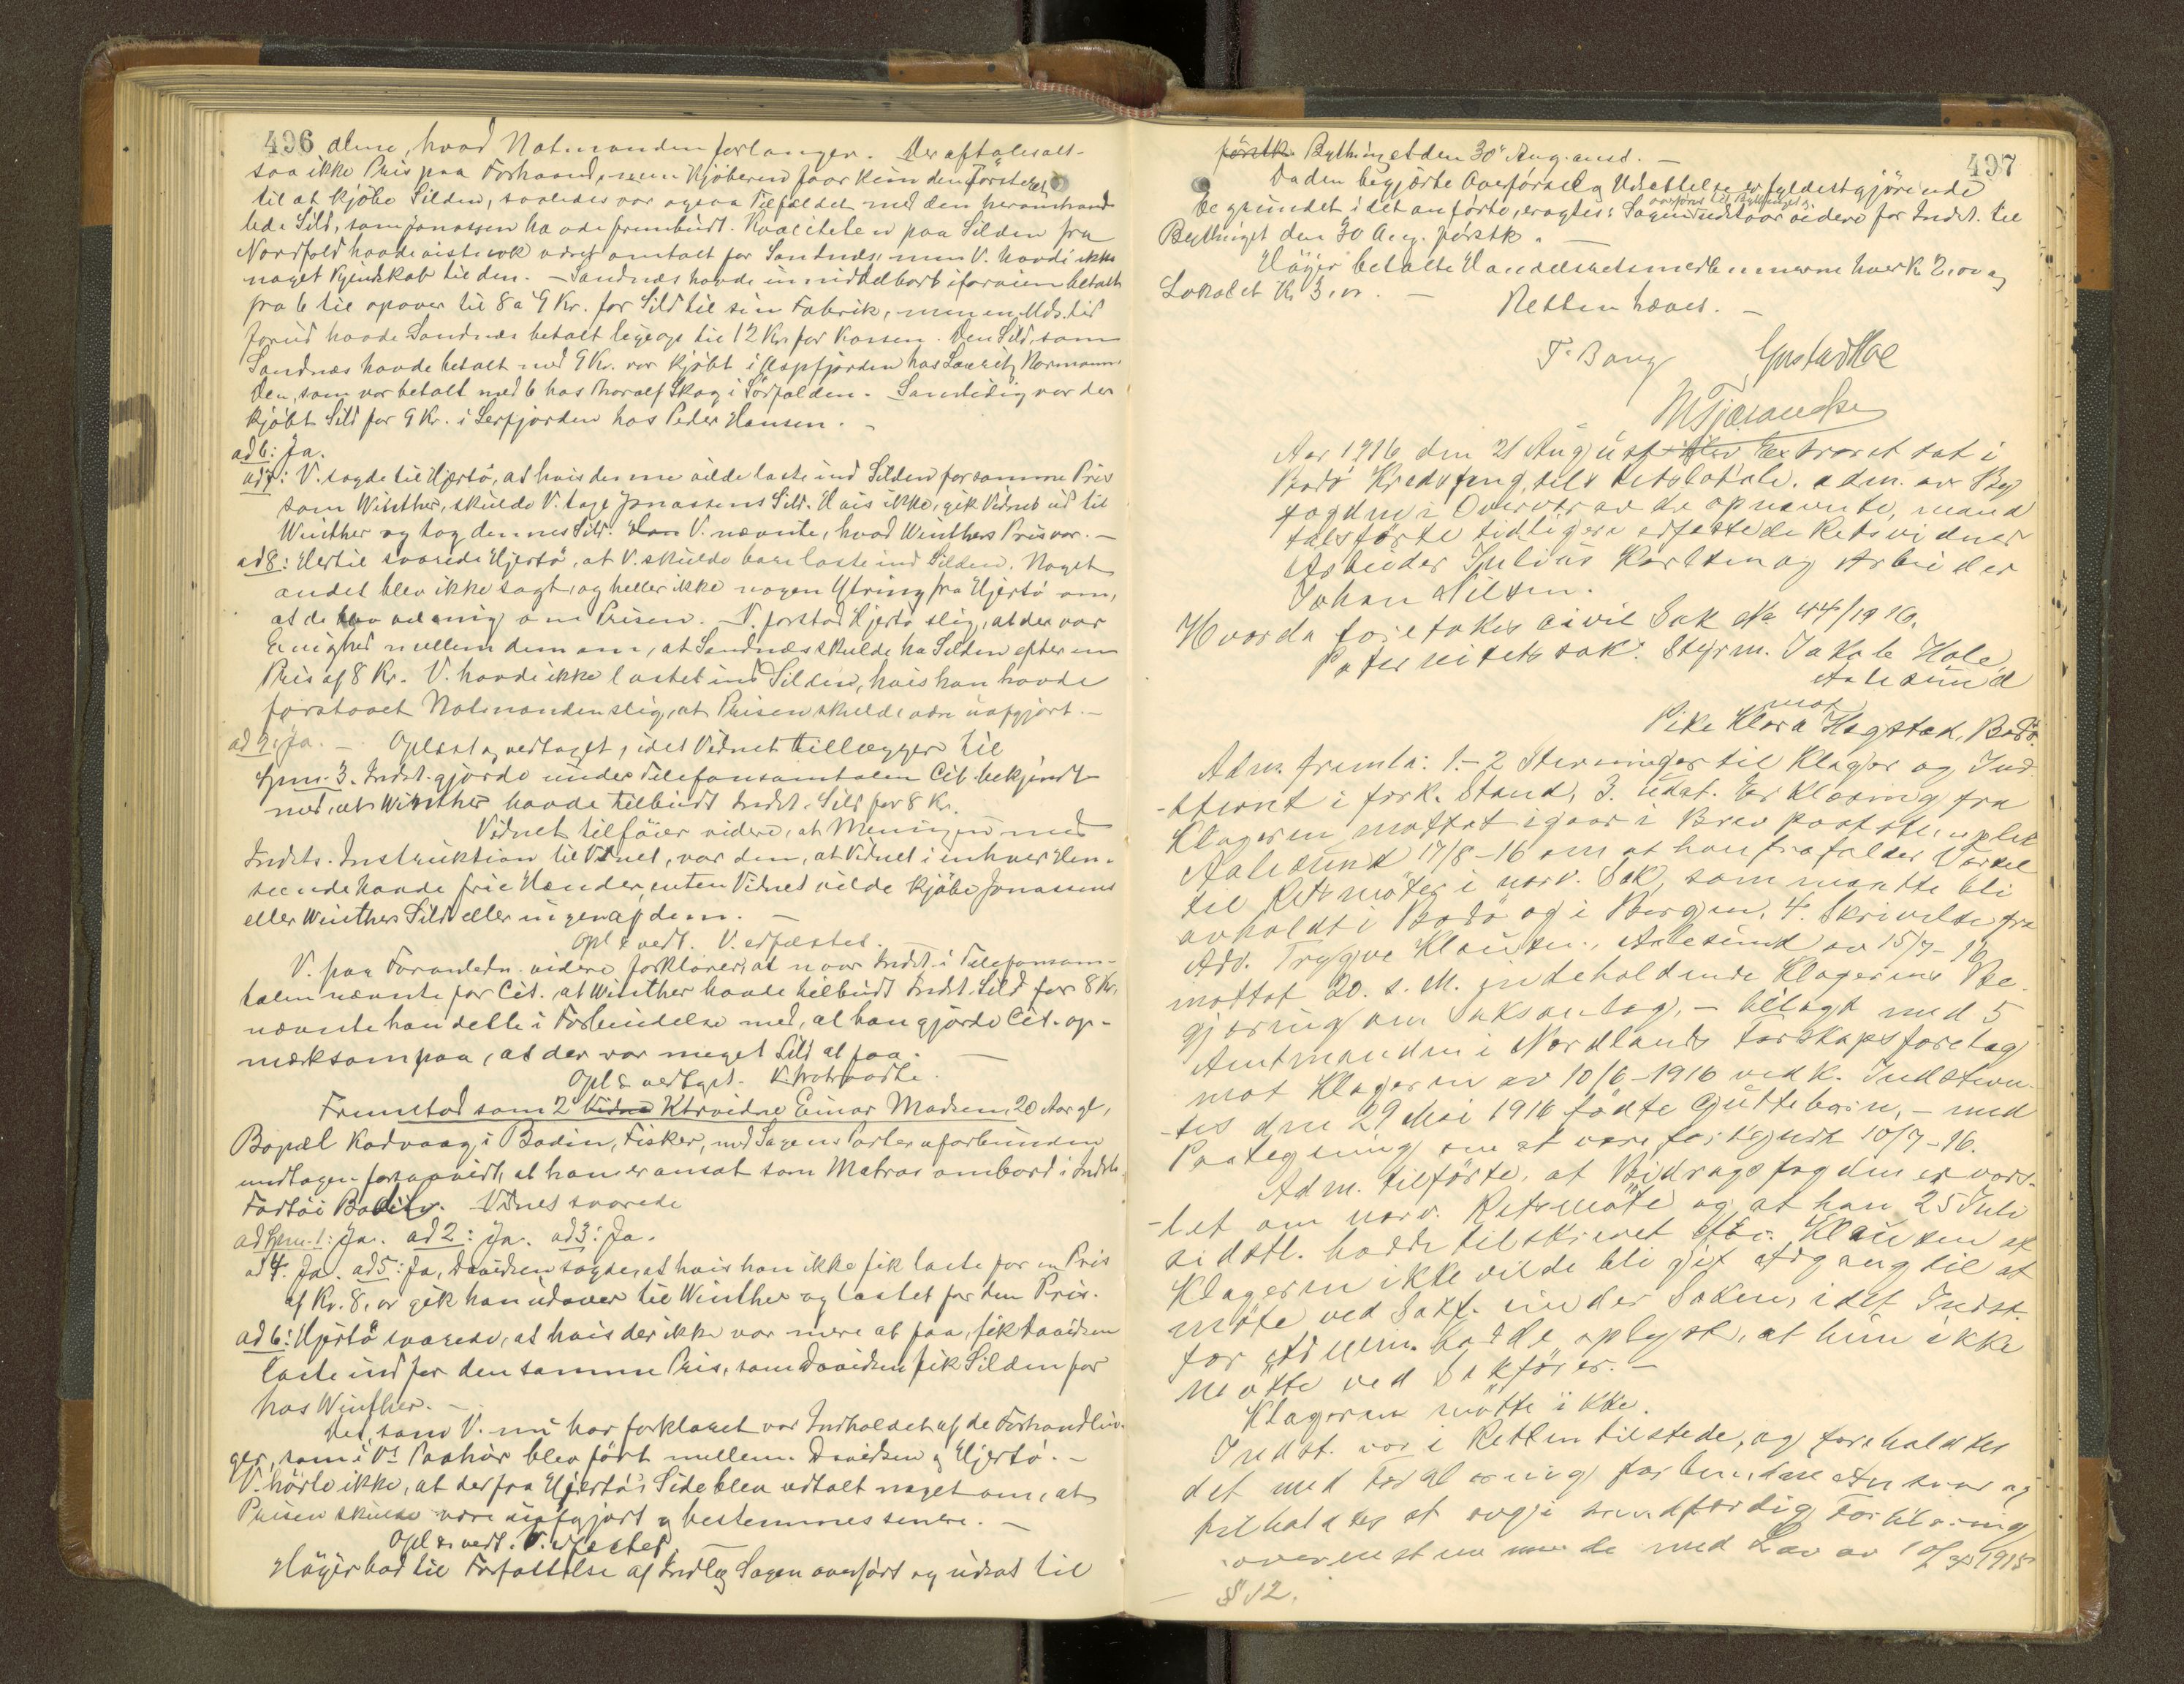 496 dene, hvad Notmanden forlanger. Der aftales alt-
saa ikke Pris paa Forhaand, men Kjöberen faar kun den Försteret
til at kjöbe Silden, saaledes var ogsaa Tilfældet med den heromhand-
lede Sild, som Jonassen havde frembudt. Kvaliteten paa Silden fra
Nordfold havde vistnok været omtalt for Sandnæs, men V. havde ikke
noget Kjendskab til den. – Sandnæs havde imidlertid iforveien betalt
fra 6 til opover til 8 a 9 Kr. for Sild til sin Fabrik, men en Mds. tid
forud havde Sandnæs betalt ligeop til 12 Kr. for Kassen. Den Sild, som
Sandnæs havde betalt med 9 Kr. var kjöbt i hos Lauritz Normann
Den, som var betalt med 6 hos Thoralf Skog i Sörfolden. Samtidig var der
kjöbt Sild for 9 Kr. i Lerfjorden hos Peder Hansen. –
ad 6: Ja.
ad 7: V. sagde til Hjertö, at hvis denne vilde laste ind Silden for samme Pris
som Winther, skulde V. tage Jonassens Sild. Hvis ikke, gik Vidnet ud til
Winther og tog dennes Sild. V. nævnte, hvad Winthers Pris var. –
ad 8: Hertil svarede Hjertö, at V. skulde bare laste ind Silden. Noget
andet blev ikke sagt, og heller ikke nogen Ytring fra Hjertö om,
at de blev uenig om Prisen. V. forstod Hjertö slig, at der var
Enighed mellem dem om, at Sandnæs skulde ha Silden efter en
Pris af 8 Kr. V. havde ikke lastet ind Silden, hvis han havde
forstaaet Notmanden slig, at Prisen skulde være uafgjort. –
ad 9: Ja. – Oplæst og vedtaget, idet Vidnet tillægger til
Spm. 3. Indst. gjorde under Telefonsamtalen Cit. bekjendt
med, at Winther havde tilbudt Indst. Sild for 8 Kr.
Vidnet tilföier videre, at Meningen med
Indsts. Instruktion til Vidnet, var den, at Vidnet i enhver Hen-
seende havde frie Hænder, enten Vidnet vilde kjöbe Jonassens
eller Winthers Sild eller ingen af dem. –
Opl & vedt. V. edfæstet. –
V. paa Foranledn. videre forklarer, at naar Indst. i Telefonsam-
talen nævnte for Cit. at Winther havde tilbudt Indst. Sild for 8 Kr.
nævnte han dette i Forbindelse med, at han gjorde Cit. op-
mærksom paa, at der var meget Sild at faa. –
Opl & vedtget.
Fremstod som 2 Vidne Ktrvidne Einar Madsen, 20 Aar gl,
Bopæl Kodvaag i Bodin, Fisker, med Sagens Parter uforbunden
undtagen forsaavidt, at han er ansat som Matros ombord i Indsts.
Fartöi Vidnet svarede
ad Spm. 1: Ja. ad 2: Ja. ad 3: Ja.
ad 4. Ja. ad 5: Ja, Davidsen sagde, at hvis han ikke fik laste for en Pris
af Kr. 8,00 gik han udover til Winther og lastet for den Pris.
ad 6: Hjertö svarede, at hvis der ikke var mere at faa, fik Davidsen
laste ind for den samme Pris, som Davidsen fik Silden for
hos Winther. –
Det, som V. nu har forklaret var Indholdet af de Forhandlin-
ger, som i Vs Paahör blev fört mellem Davidsen & Hjertö. –
V. hörte ikke, at der fra Hjertö's Side blev udtalt noget om, at
Prisen skulde være uafgjort & bestemmes senere. –
Opl & vedt. V. edfæstet.
Häyer bad til Forfattelse af Indlæg Sagen overfört og udsat til
497
förstk. Bythinget den 30te Aug. anst. –
Da den begjærte Overförsel og Udsættelse er fyldestgjörende
begrundet i det anförte, eragtes: Sagen overföres til Bythinget & udstaar videre for Indst. til
Bythinget den 30 Aug. förstk. –
Häyer betalte Handelsretsmedlemmerne hver K 2,00 og
Lokalet K 3,00. –
Retten hævet. –
F. Bang Gustav Moe
Aar 1916 den 21 August blev Extraret sat i
Bodö Kredsfeng, retslokale, adm. av By
fogden i Overvær av de opnævnte, mand
talsförte tidligere edfæstede Retsvidner
Arbeider Julius Karlsen og Arbeider
Johan Nilsen.
Hvorda foretokes civil Sak No 44/1916.
Paternitetssak: Styrm. Jakob Hole,
Aalesund
mot
Pike Klara Hagstad, Bodö.
Adm. fremla: 1.–2 Stevninger til Klager og Ind-
-stevnt i fork. Stand, 3. udat. Erklæring fra
Klageren mottat igaar i Brev poststemplet
Aalesund 17/8–16 om at han frafalder Varsel
til Retsmöter i nærv. Sak, som maatte bli
avholdt i Bodö og i Bergen. 4. Skrivelse fra
Adv. Trygve Klausen, Aalesund av 15/7–16
mottat 20. s. M. indeholdende Klagerens Be-
gjæring om Saksanlæg, – bilagt med 5
Amtmanden i Nordlands Farskapsforelæg
mot Klageren av 10/6–1916 vedk. Indstevn-
tes den 29 Mai 1916 födte Guttebarn, – med
Paategning om at være forkyndt 10/7–16.
Adm. tilförte, at Bidragsfogden er vars-
-let om nærv. Retsmöte og at han 25 Juli
sidstl. hadde tilskrevet Adv. Klausen at
Klageren ikke vilde bli git Adgang til at
möte ved Sakf. under Saken, idet Indst.
for Adm. hadde oplyst, at hun ikke
mötte ved Sakförer. –
Klageren mötte ikke.
Indst. var i Retten tilstede, og foreholdtes
det med Forklaring forbundne Ansvar og
tilholdtes at avgi sandfærdig Forklaring
overenstemmende med Lov av 10/4 1915
§ 12.